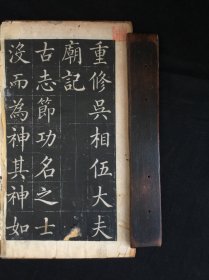 重修吳相伍大夫
廟記
古志節功名之士
沒而為神其神如